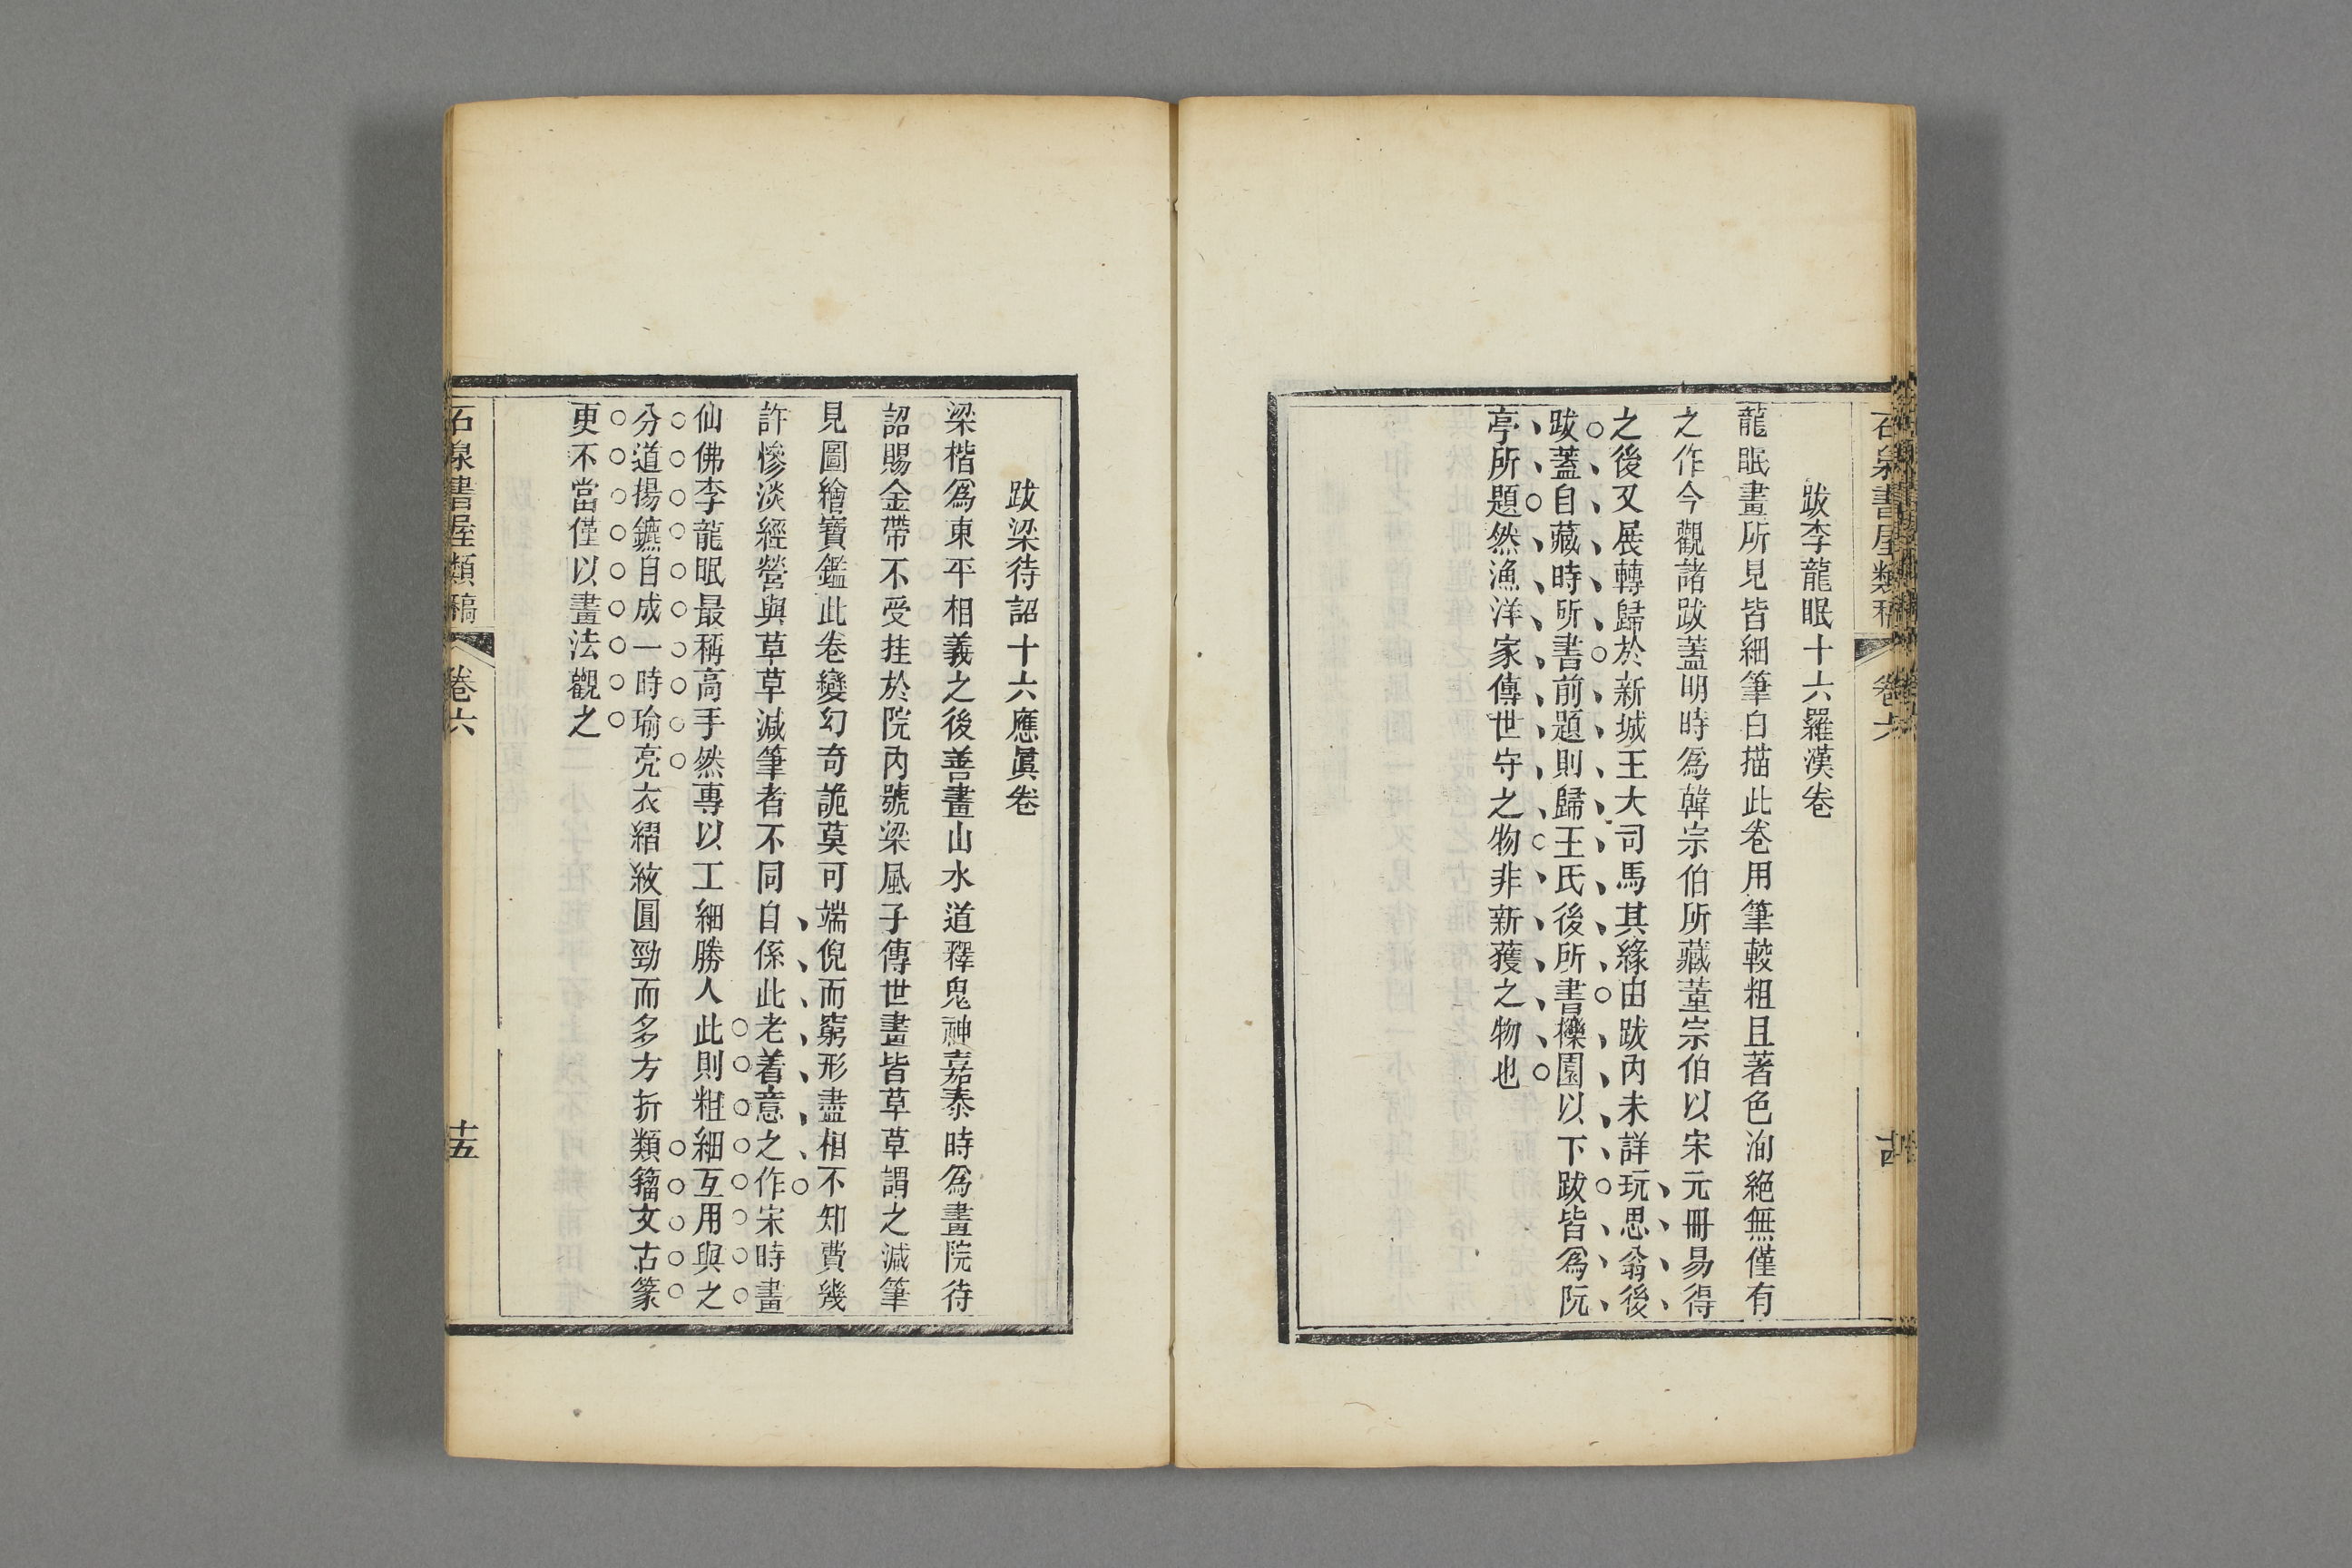 石泉書屋類稿
卷六
跋李龍眠十六羅漢卷
龍眠畫所見皆細筆白描此卷用筆較粗且著色洵絕無僅有
之作今觀諸跋蓋明時爲韓宗伯所藏董宗伯以宋元冊易得
之後又展轉歸於新城王大司馬其緣由跋內未詳玩思翁後
跋蓋自藏時所書前題則歸王氏後所書櫟園以下跋皆爲阮
亭所題然漁洋家傳世守之物非新獲之物也
跋梁待詔十六應眞卷
梁楷爲東平相義之後善畫山水道釋鬼神嘉泰時爲畫院待
詔賜金帶不受挂於院內號梁風子傳世畫皆草草謂之減筆
見圖繪寶鑑此卷變幻奇詭莫可端倪而窮形盡相不知費幾
許慘淡經營與草草減筆者不同自係此老着意之作宋時畫
仙佛李龍眠最稱高手然專以工細勝人此則粗細互用與之
分道揚鑣自成一時瑜亮衣褶紋圓勁而多方折類籀文古篆
更不當僅以畫法觀之
石泉書屋類稿
卷六
十五